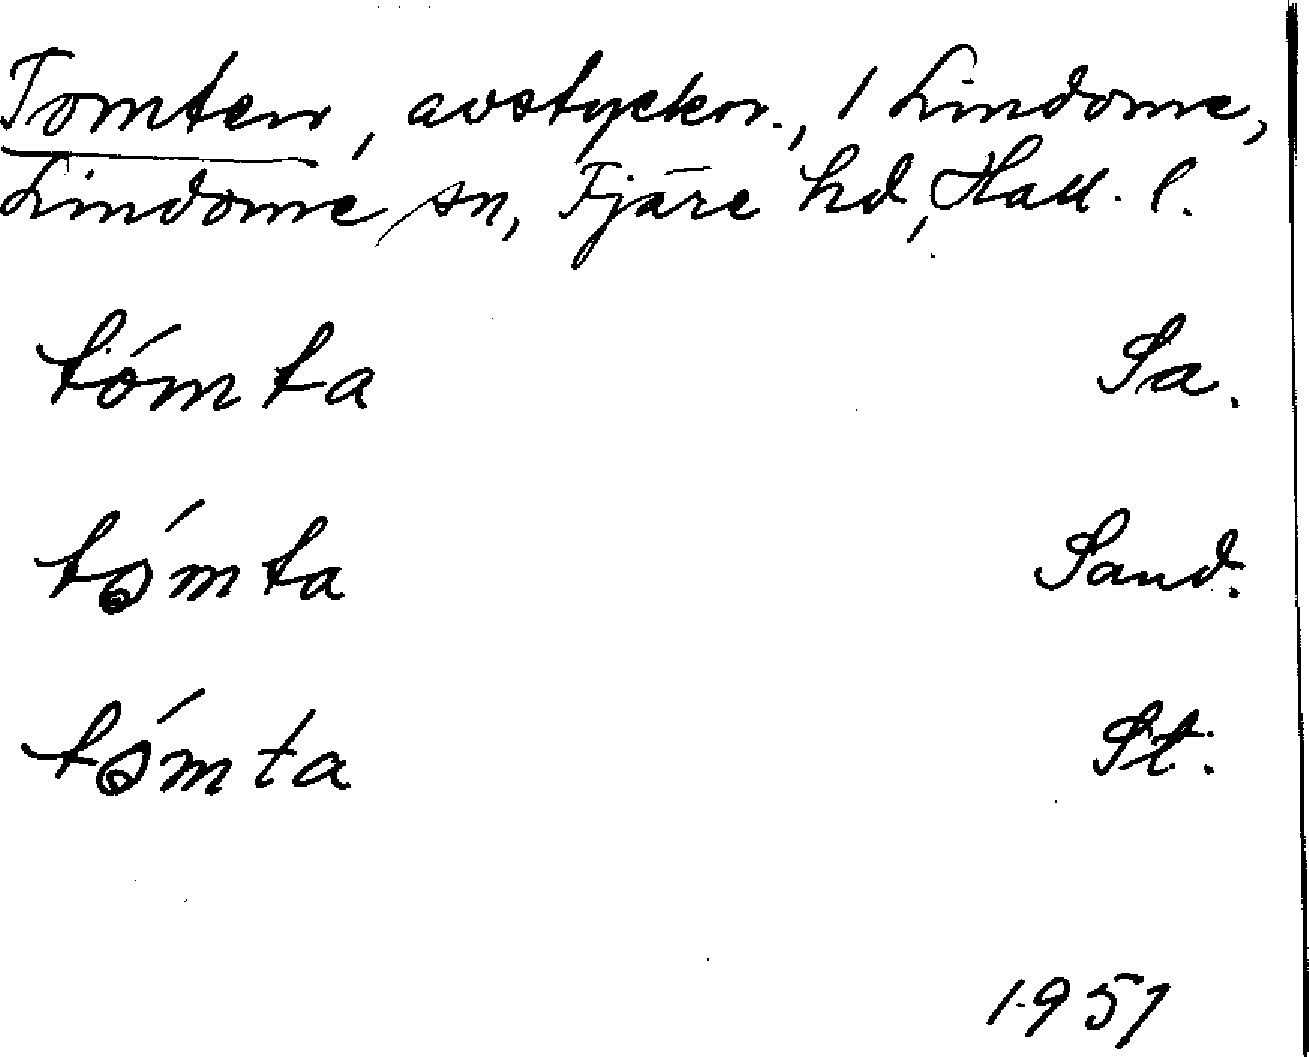 Tomten, avstyckn., 1 Lindome,
Lindome sn, Fjäre hd, Hall. l.
tómta Sa.
tǿmta Sand.
tǿmta St.
1951